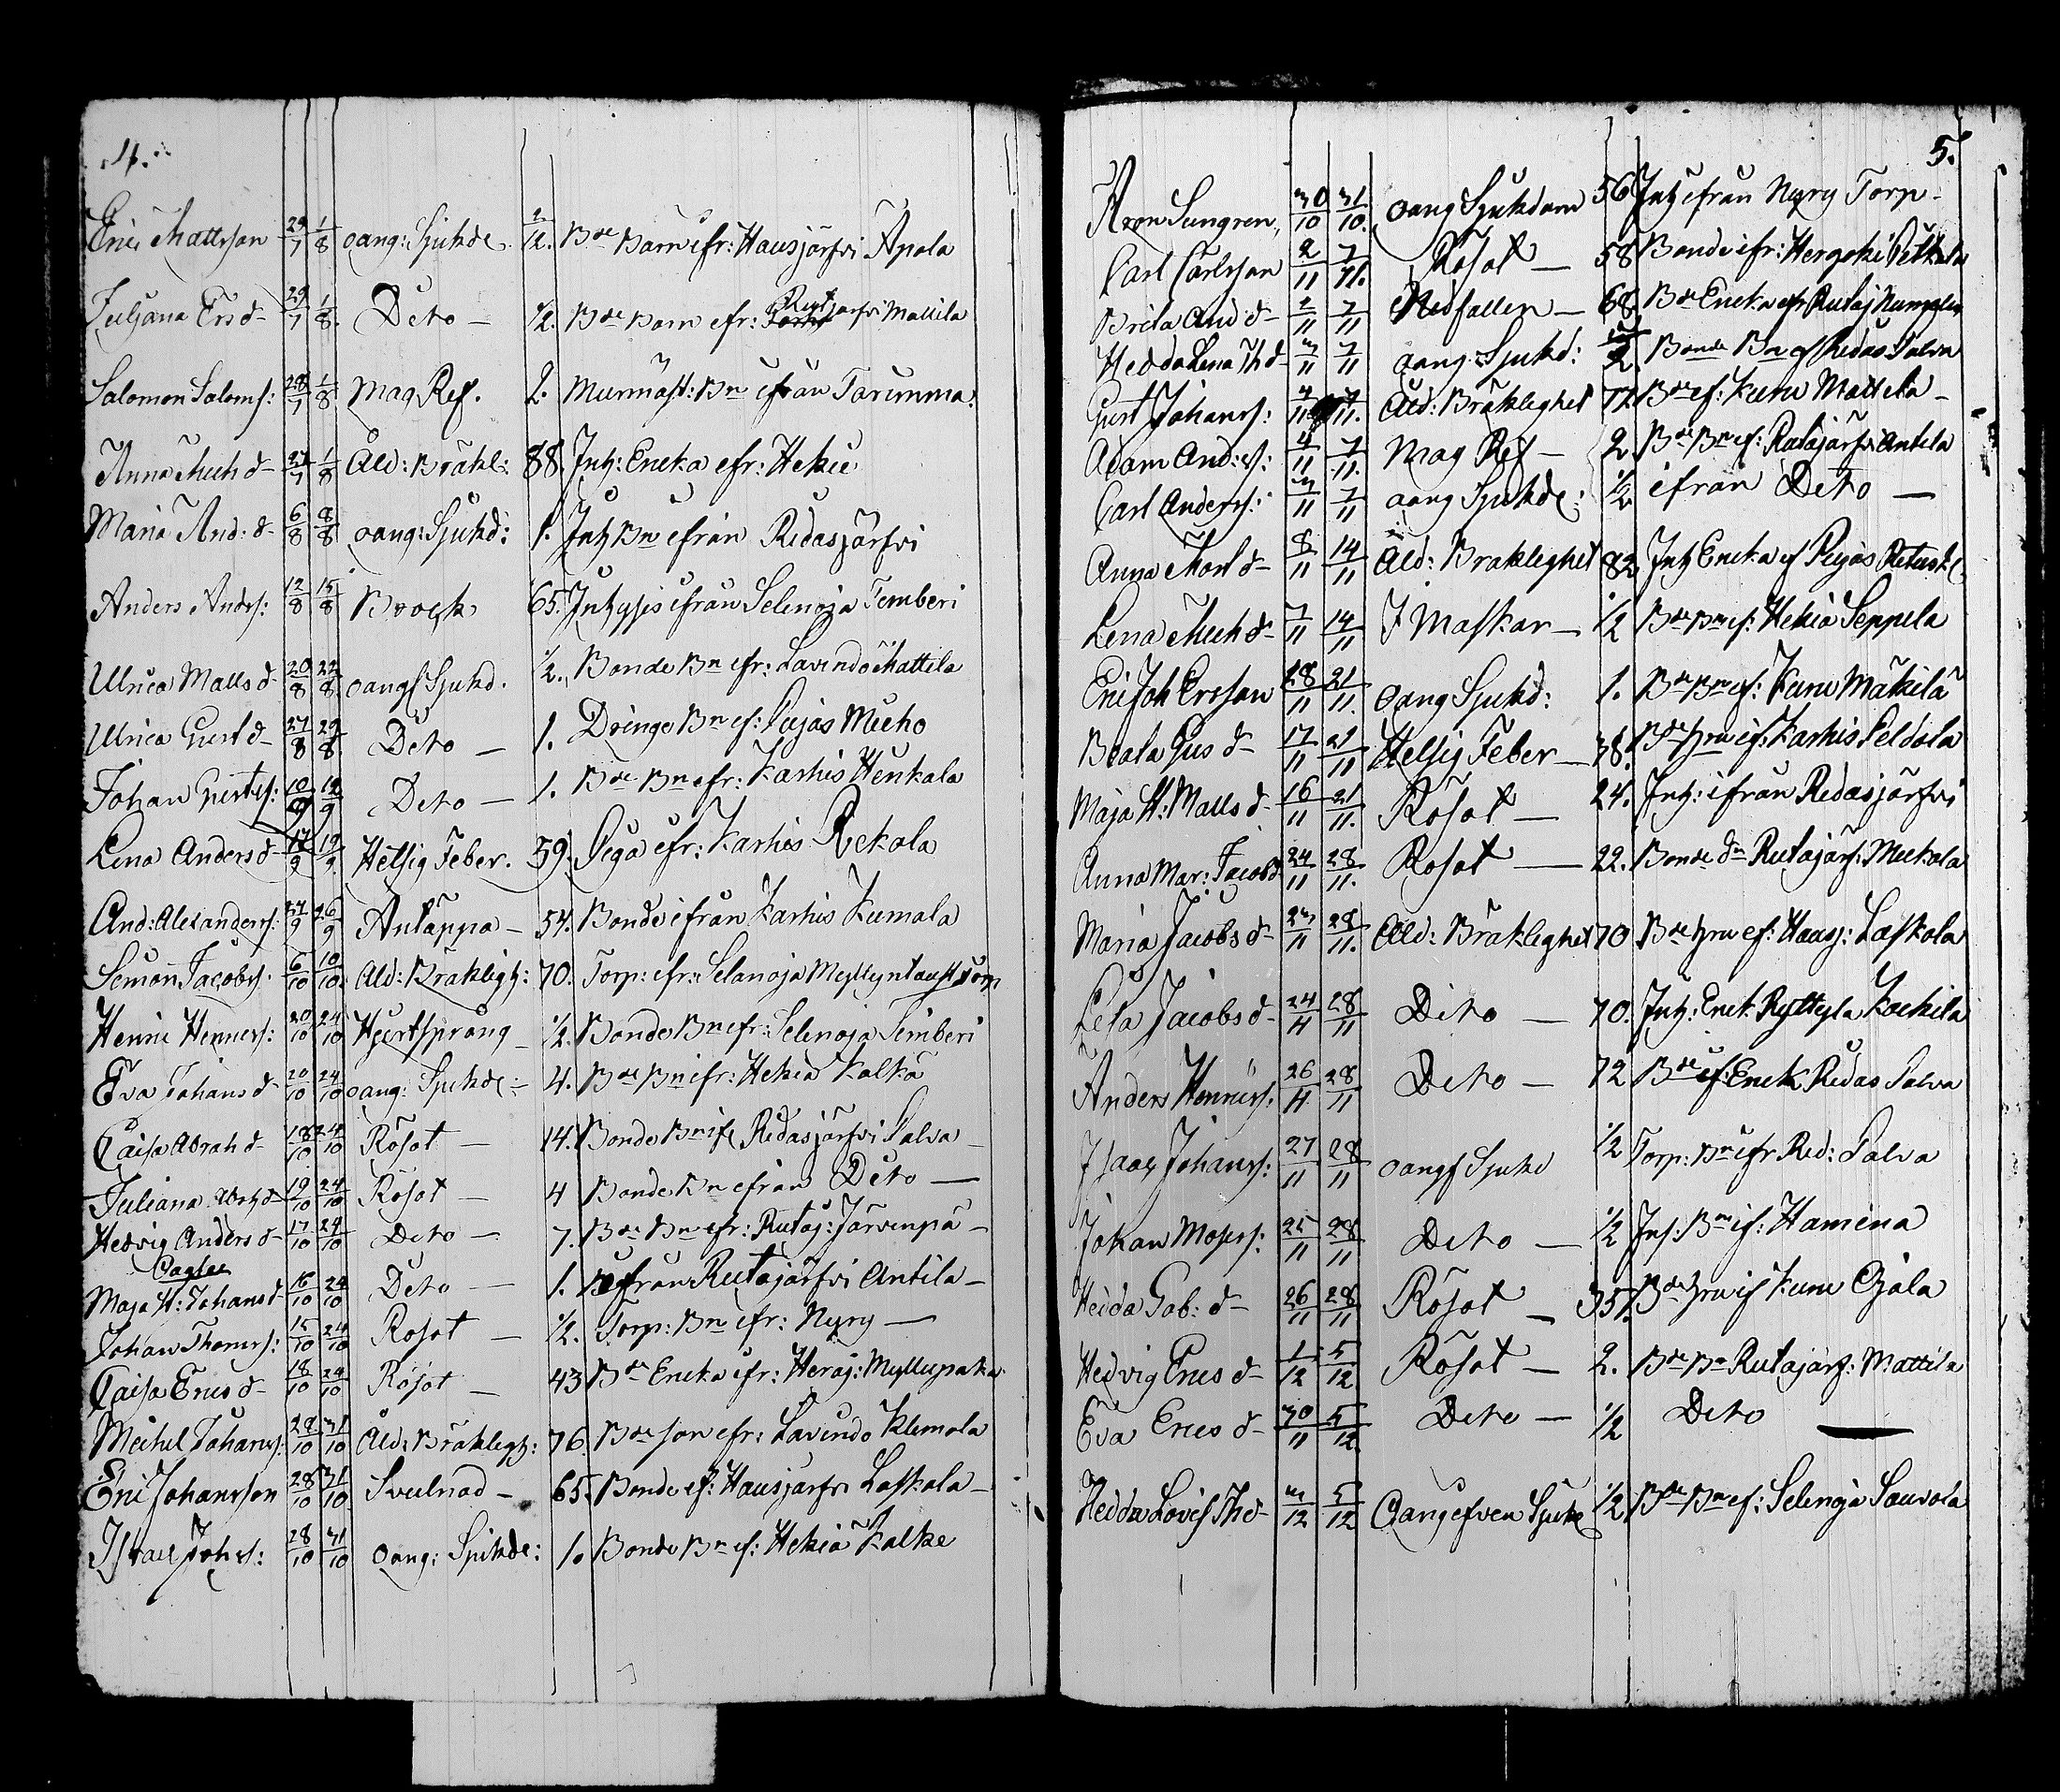 4.
Eric Mattsson 29/7 1/8 oang: Sjukde. 2/12. Bde Barn efr: Hausjärfvi Apola
Juljana Ersd- 29/7 1/8. Deto — 1/2. Bde Barn efr: Rutjärfvi Mattila
Salomon Saloms: 28/7 1/8 Mag Ref. 2. Murmäst: Bn efrån Tarinmna.
Anna Mich d- 27/7 1/8 Åld: Bräkl: 88. Inh: Encka efr: Hekie
Maria And: d- 6/8 8/8 oang: Sjukd: 1. Inh Bn efrån Ridasjärfvi
Anders Anders: 12/8 15/8 Brock 65. Inhysis efrån Selenoja Temberi
Ulrica Matts d- 20/8 22/8 oangf Sjukd. 1/2. Bonde Bn efr: Lavindo Mattila
Ulrica Gust d- 27/8 29/8 Deto — 1. Drängs Bn ef: Pujas Micho
Johan Gustafs: 10/9 12/9 Deto — 1. Bde Bn efr: Karhis Henkala
Lena Anders d- 17/9 19/9 Hetsig Feber. 59. Piga efr: Karhis Rekola
And: Alexanders: 27/9 26/9 Antäppa — 54. Bonde ifrån Karhis Kumala
Semon Jacobs: 6/10 10/10. Ald: Bräkligh: 70. Torp: efr: Selanoja Myllyntaust Torp
Henric Henners: 20/10 24/10 Hjertsprång 1/2. Bonde Bn efr: Selenoja Simberi
Eva Johans d- 20/10 24/10 oang: Sjukde: 4. Bde Bn ifr: Hekia Kalka
Caisa Abrah d- 18/10 24/10 Rösot — 14. Bonde Bn if Ridasjärfvi Salva —
Juliana Abrh d- 19/10 24/10 Rösot — 4 Bonde Bn efrån Deto —
Hedvig Anders d- 17/10 24/10 Deto — 7. Bde Bn efr: Rutaj: Järvenpä —
Maja St: Johans d- 16/10 24/10 Deto — 1. efrån Rutajärfvi Antila —
Johan Thoms: 15/10 24/10 Rosot — 1/2. Torp: Bn efr: Nyry —
Caisa Erics d- 18/10 24/10 Rösot — 43 Bde Encka efr: Heraj: Myllupaka
Michel Johans: 28/10 31/10 Åld: Bräkligh: 76. Bde son efr: Lavindo Klemola
Eric Johansson 28/10 31/10 Svulnad — 65. Bonde ef: Hausjärfvi Laskola —
Israel Johs: 28/10 31/10 oang: Sjukde: 1. Bonde Bn ef: Hekia Kalke
5.
Aron Sungren, 30/10 31/10. oang Sjukdom 56 Inh efrån Nyry Torp.
Carl Carlsson 2/11 7/11. Rösot — 58 Bonde efr: Hergoki
Brita And d- 2/11 7/11 Nidfallen — 68 Bde Encka efr Rutaj
Hedda Lena Th d- 3/11 7/11 oang: Sjukd: Bonde Bn ef Ridas Salva
Gust Johans: 4/11 7/11. Åld: Bräklighet 72. Bde ef: Kuru Mattila —
Adam And: s: 4/11 7/11. Mag Ref — 2 Bde Bn ef: Rutajärfvi Antila
Carl Anders: 3/11 7/11 oang Sjukde: 1/2 efrån Deto —
Anna d- 8/11 14/11 Ald: Bräklighet 82 Inh Encka ef Pujas
Lena Mich d- 7/11 14/11 I Maskar — 1/2 Bde Bn ef: Hekia Seppela
Eric Joh Ersson 18/11 21/11. oang Sjukd: 1. Bde Bn ef: Kuru Mäkilä
Beata Gus d- 17/11 21/11 Hetsig Feber — 38. Bde hru ef: Karhis Peldola
Maja St: Matts d- 16/11 21/11. Rösot — 24. Inh: ifrån Ridasjärfvi
Anna Mar: Jacobd 24/11 28/11. Rosot — 22. Bonde dn Rutajärf: Mickola
Maria Jacobs d- 23/11 28/11. Åld: Bräklighet 70 Bde hru ef: Haasj: Laskola
Lisa Jacobs d- 24/11 28/11 Dito — 70. Inh: Enck Ryttyla Kockila
Anders Henrics: 26/11 28/11 Deto — 72 Bde ef: Enck Ridas Salva
Isaac Johans: 27/11 28/11 oangf Sjukd 1/2 Torp: Bn efr Rid: Salva
Johan Moses: 25/11 28/11 Deto — 1/2 Inh: Bn if: Hamina
Hedda Gab: d- 26/11 28/11 Rösot — 35. Bde hru if Kuru Ojala
Hedvig Erics d- 1/12 5/12 Rösot — 2. Bde Bn Rutajärf: Mattila
Eva Erics d- 30/11 5/12. Deto — 1/2 Deto —
Hedda Lovis Thd- 3/12 5/12 Oangefven Sjuk 1/2 Bde Bn ef: Selenoja Sauvola